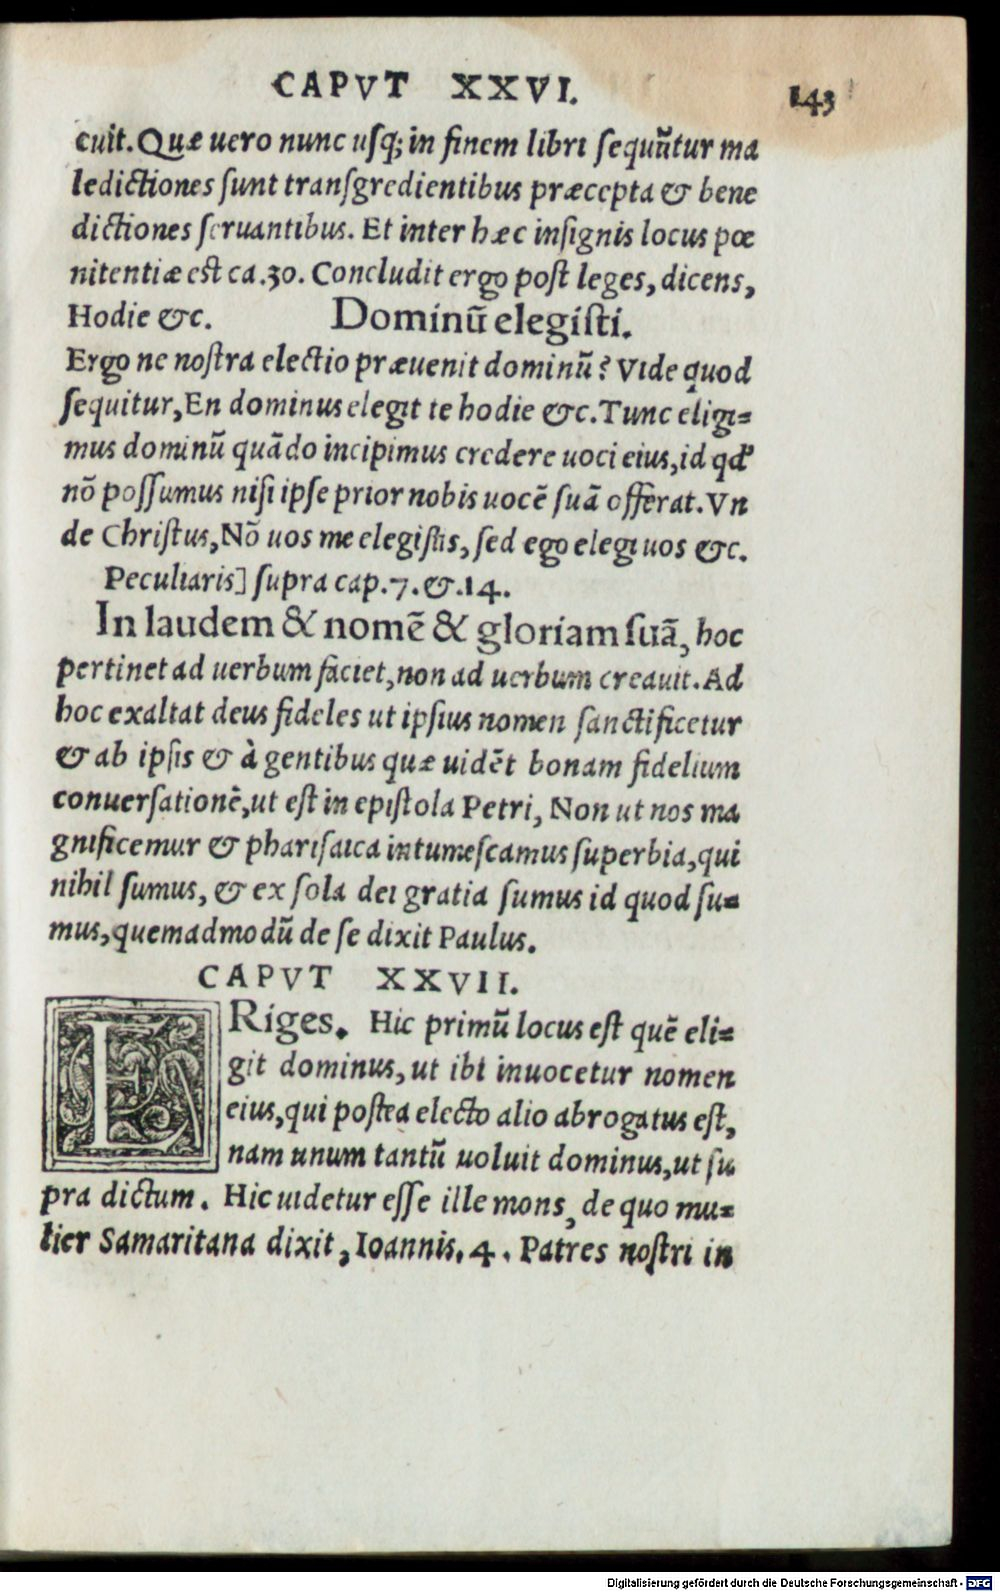 CAPVT XXVI. 143
cuit. Quæ uero nunc usq; in finem libri sequũtur ma
ledictiones sunt transgredientibus præcepta & bene
dictiones seruantibus. Et inter hæc insignis locus pœ
nitentiæ est ca.30. Concludit ergo post leges, dicens,
Hodie &c. Dominũ elegisti.
Ergo ne nostra electio præuenit dominũ? Vide quod
sequitur, En dominus elegit te hodie &c. Tunc eligi=
mus dominũ quãdo incipimus credere uoci eius, id qđ
nõ possumus nisi ipse prior nobis uocẽ suã offerat. Vn
de Christus, Nõ uos me elegistis, sed ego elegi uos &c.
Peculiaris] supra cap.7. &.14.
In laudem & nomẽ & gloriam suã, hoc
pertinet ad uerbum faciet, non ad uerbum creauit. Ad
hoc exaltat deus fideles ut ipsius nomen sanctificetur
& ab ipsis & à gentibus quæ uidẽt bonam fidelium
conuersationẽ, ut est in epistola Petri, Non ut nos ma
gnificemur & pharisaica intumescamus superbia, qui
nihil sumus, & ex sola dei gratia sumus id quod su=
mus, quemadmodũ de se dixit Paulus.
CAPVT XXVII.
ERiges. Hic primũ locus est quẽ eli=
git dominus, ut ibi inuocetur nomen
eius, qui postea electo alio abrogatus est,
nam unum tantũ uoluit dominus, ut su
pra dictum. Hic uidetur esse ille mons, de quo mu=
lier Samaritana dixit, Ioannis. 4. Patres nostri in
Digitalisierung gefördert durch die Deutsche Forschungsgemeinschaft - DFG